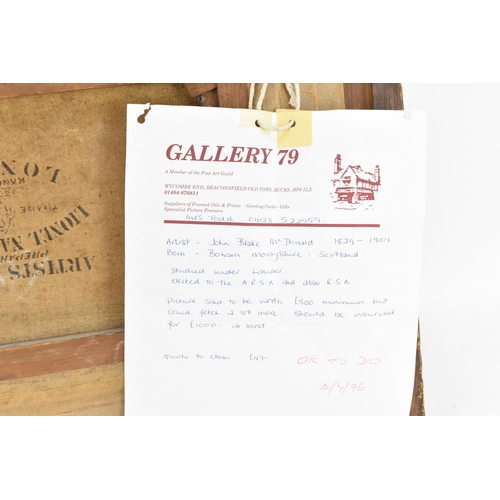 GALLERY 79
A Member of the Fine Art Guild
WYCOMBE END, BEACONSFIELD OLD TOWN, BUCKS. HP9 1LX
01494 676811
Suppliers of Framed Oils & Prints - Greeting Cards - Gifts
Specialist Picture Framers
Mrs Todd 01628 522959.
Artist - John Blake McDonald 1829 - 1901
Born - Boharm Morayshire - Scotland.
Studied under Lauder
elected to the A.R.S.A and also R.S.A.
Picture said to be worth £500 minimum but
could fetch a lot more, should be insured
for £1000 - at least.
quote to clean
OK TO DO
4/3/96
LON
LIONEL NA
PREPARE
ARTISTS